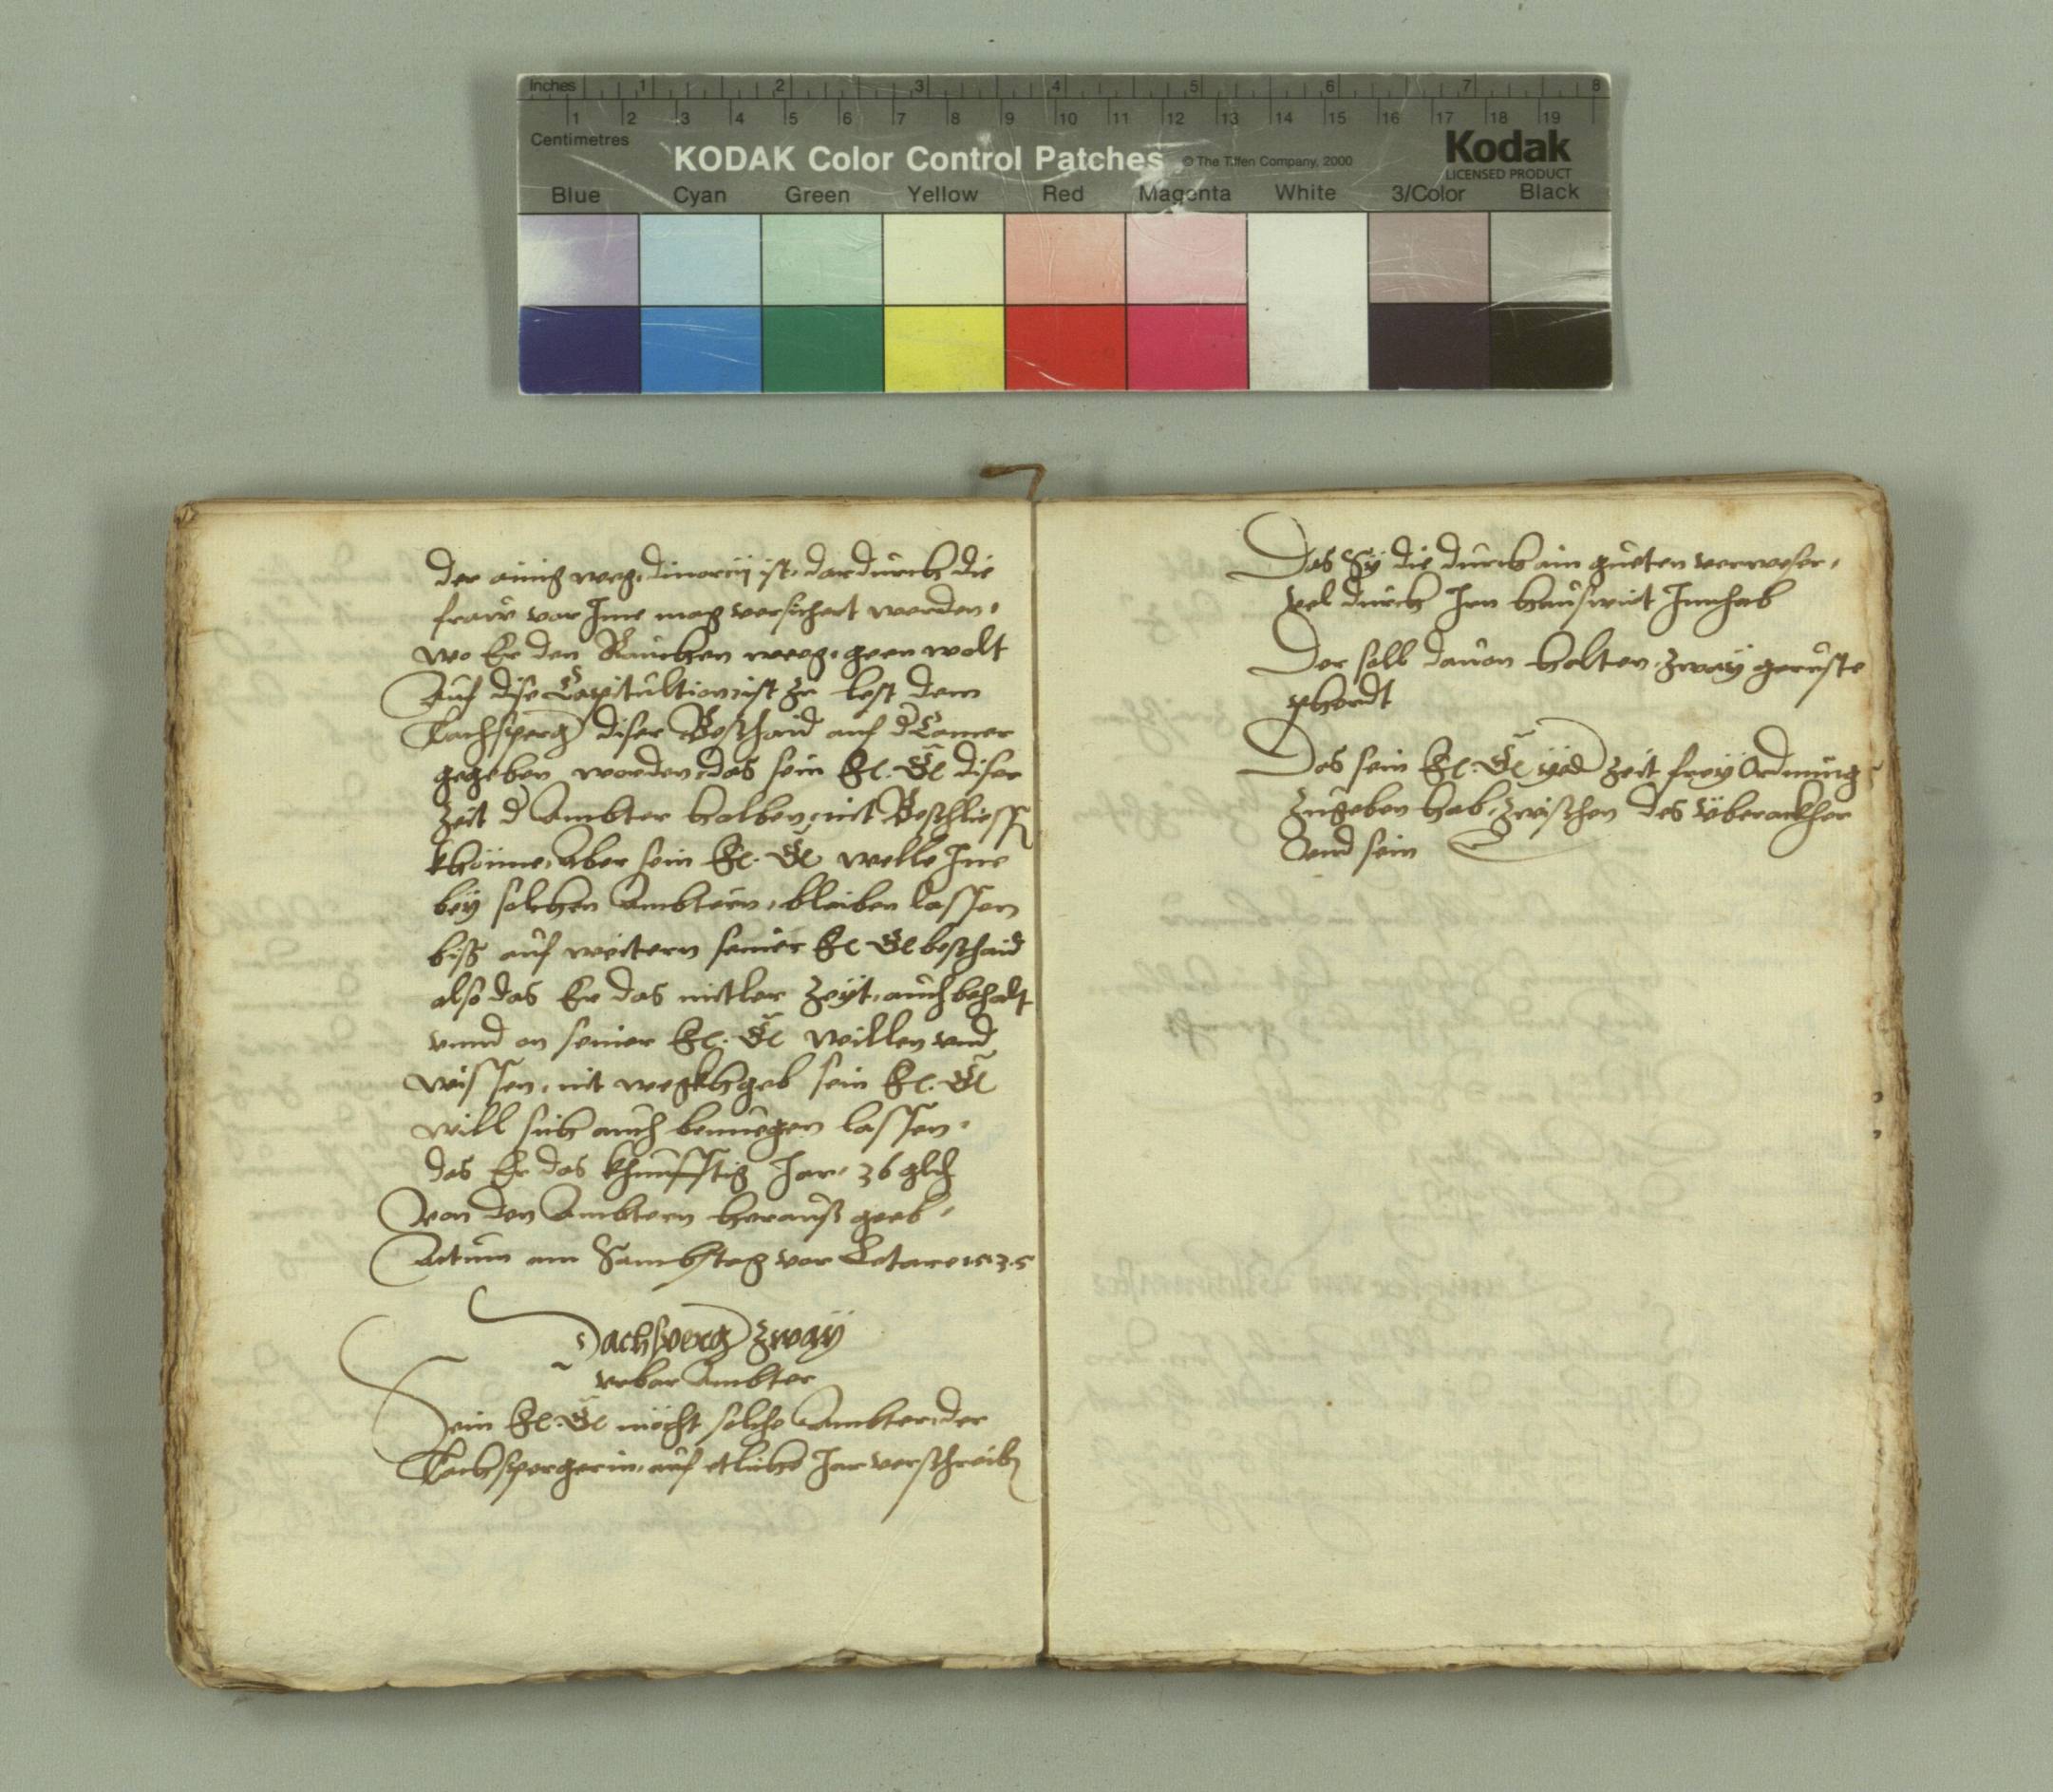 Inches 1 2 3 4 5 6 7 8
1 2 3 4 5 6 7 8 9 10 11 12 13 14 15 16 17 18 19
Centimetres
KODAK Color Control Patches © The Tiffen Company, 2000 Kodak
LICENSED PRODUCT
Blue Cyan Green Yellow Red Magenta White 3/Color Black
der ainig weg, divorcÿ ist, dardurch die
fraw vor Jme mag versichert werden,
wo Er den Rauchen weeg, geen wolt
Auf dise Capitultion ist zu lest dem
Tachsperg diser Beschaid auf d Camer
gegeben worden, das sein Fl. Gl diser
Zeit d Ambter halben, nit Beschliess
khönne, Aber sein Fl. Gl welle Jme
beÿ solchen Ambtern, bleiben lassen
biss auf weitern seiner Fl Gl beschaid
also das Er das mitler Zeÿt, auch behalt
vnnd on seiner Fl. Gl willen vnd
wissen, nit wegkhgeb sein Fl. Gl
will sich auch benuegen lassen,
das Er das khunfftig Jar, 36
von den Ambtern herauss geeb,
Actum am Sambstag vor Letare 1535
Dachsperg Zwaÿ
vrbar Ambter
Sein Fl. Gl möcht solche Ambter, der
Tachspergerin, auf etliche Jar verschreib
Das Sÿ die durch ain gueten verweser,
vel durch Jrn hauswirt Jnnhab
Der soll dauon halten, zwaÿ geruste
phordt
Das sein Fl. Gl ÿed Zeit freÿ Ordnung
zugeben hab, zwischen des vberackher
Vnd sein